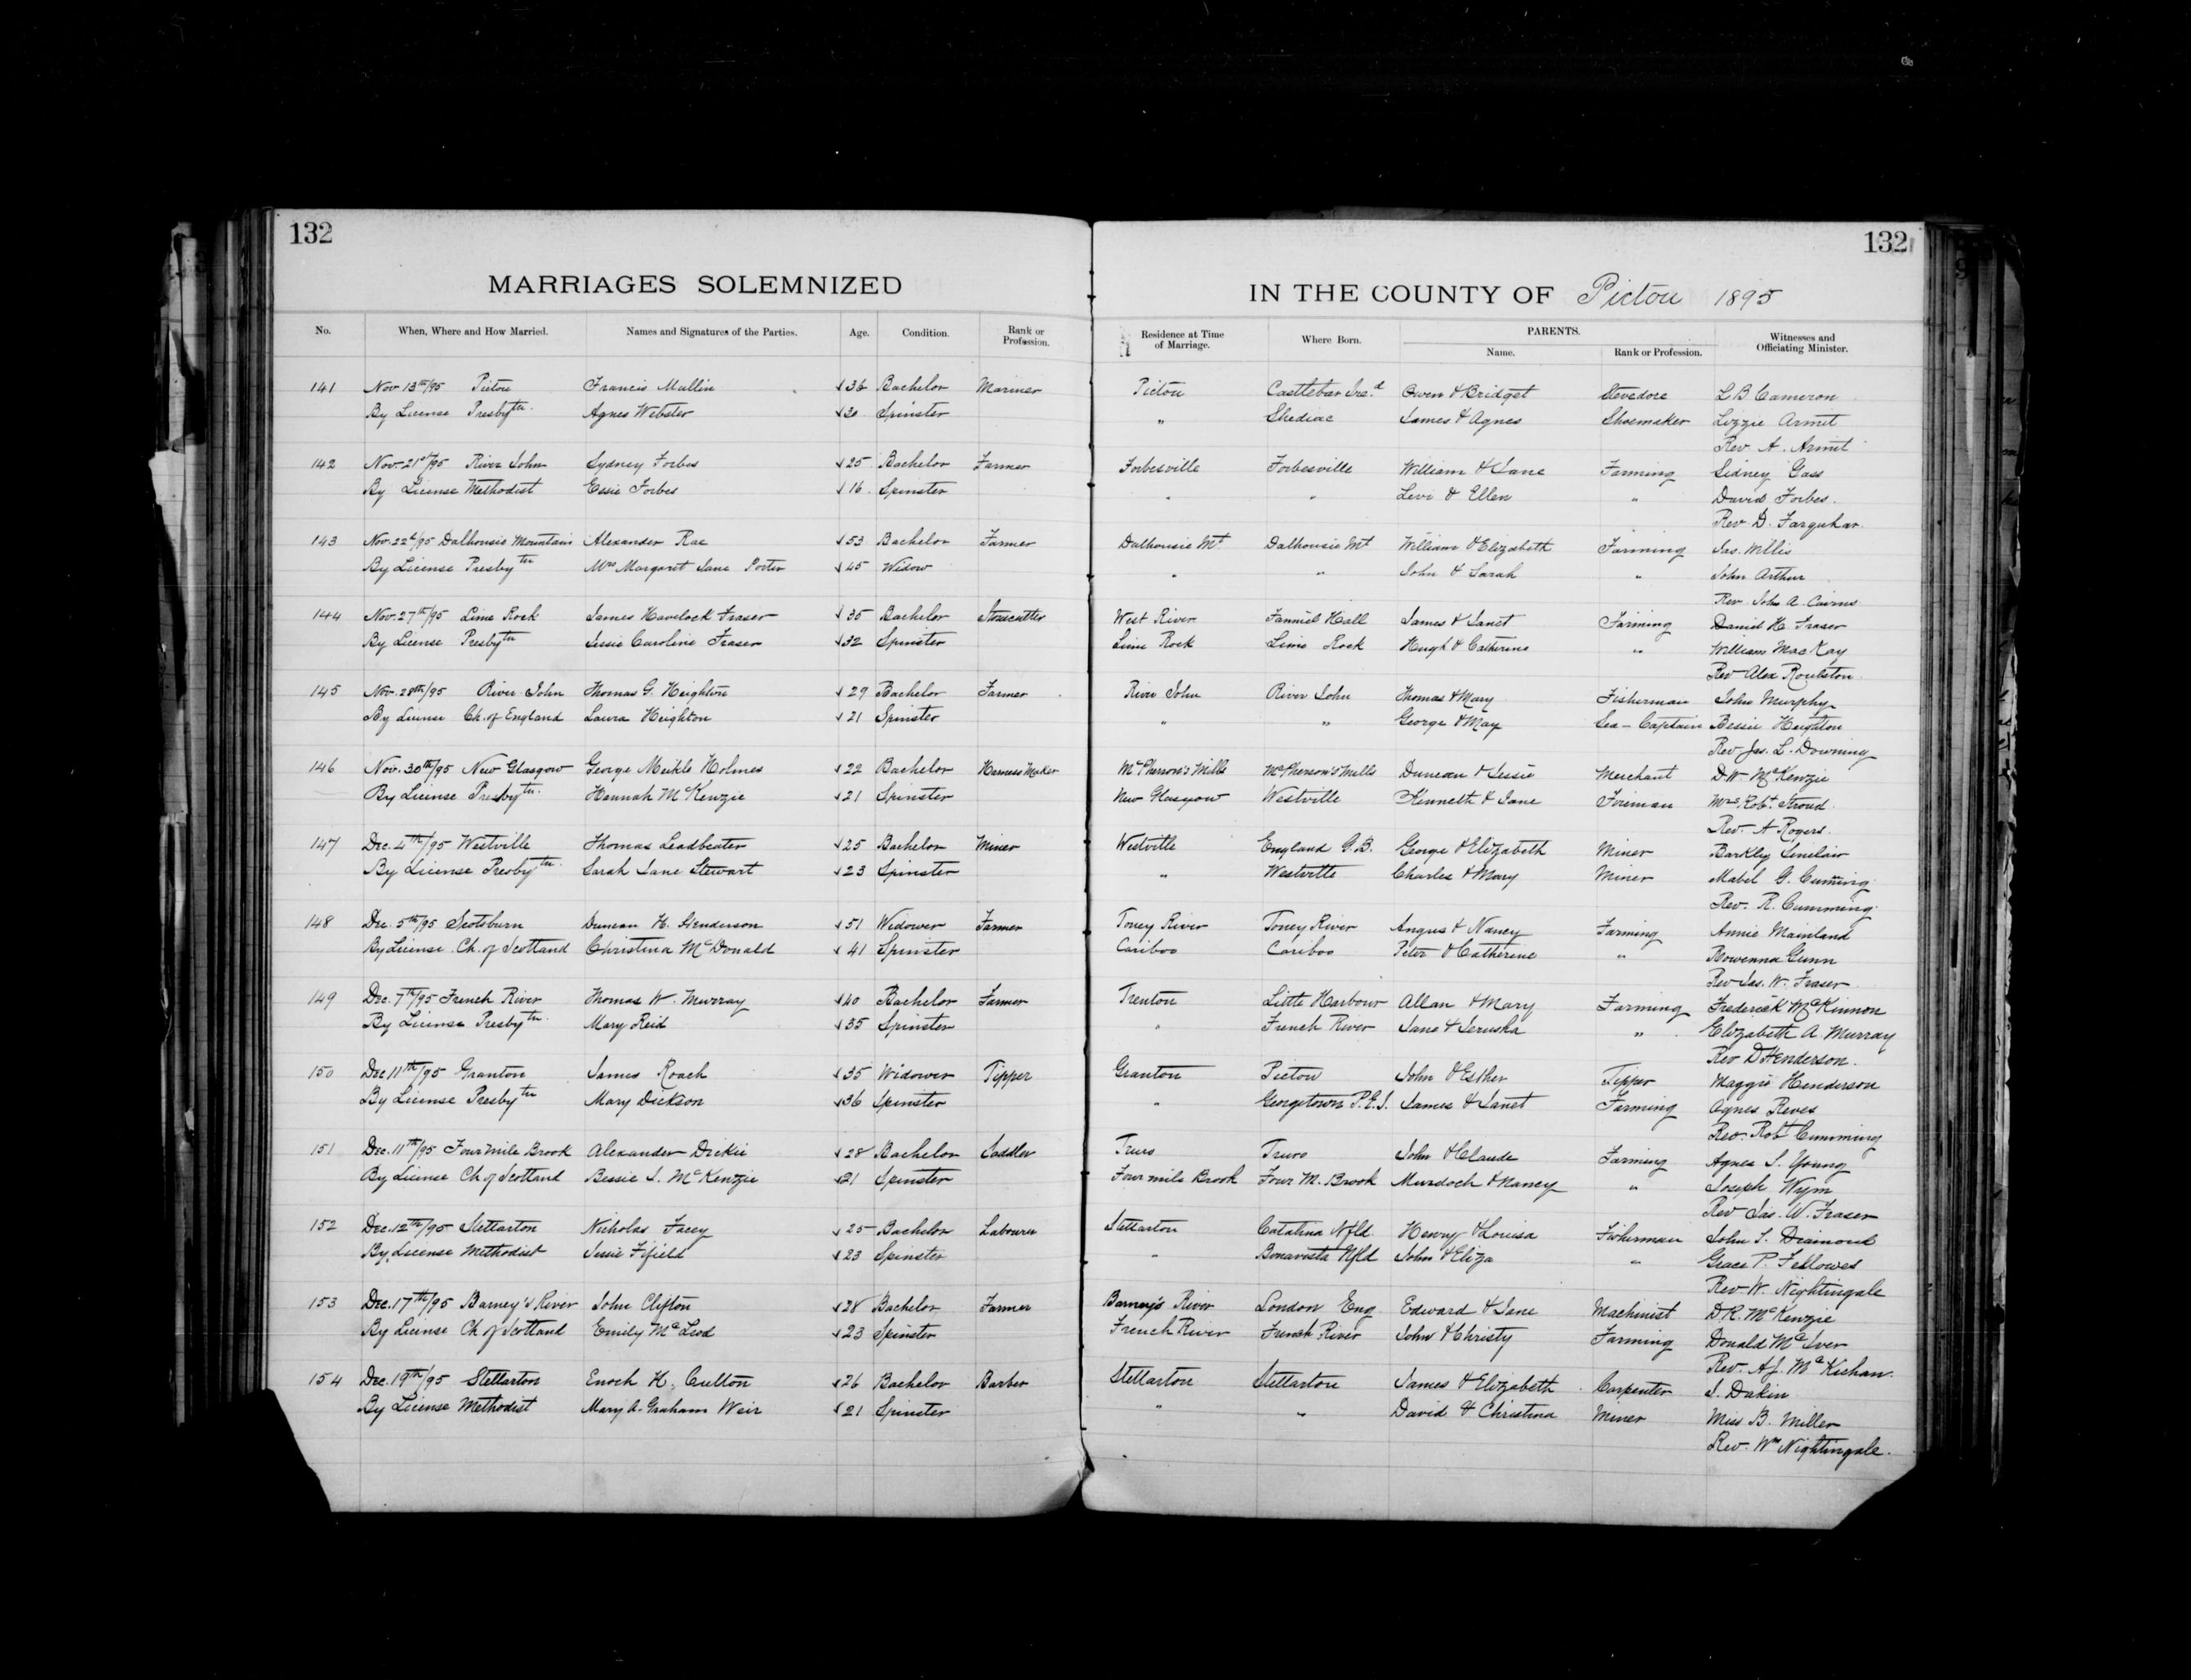 132
132
MARRIAGES SOLEMNIZED
IN THE COUNTY OF Pictou 1895
No. When, Where and How Married. Names and Signatures of the Parties. Age. Condition. Rank or Profession. Residence at Time of Marriage. Where Born. PARENTS. Name. Rank or Profession. Witnesses and Officiating Minister.
141 Nov 13th/95 Pictou Francis Mullin 36 Bachelor Mariner Pictou Castlebar Ire.d Owen & Bridget Stevedore L B Cameron
By License Presbytn. Agnes Webster 30 Spinster " Shediac James & Agnes Shoemaker Lizzie Armit
Rev A. Armit
142 Nov. 21st/95 River John Sydney Forbes 25 Bachelor Farmer Forbesville Forbesville William & Jane Farming Sidney Gass
By License Methodist Essie Forbes 16 Spinster " " Levi & Ellen " David Forbes.
Rev D. Farquhar.
143 Nov. 22d/95 Dalhousie Mountain Alexander Rae 53 Bachelor Farmer Dalhousie Mt Dalhousie Mt William & Elizabeth Farming Jas. Willis
By License Presbytn Mrs Margaret Jane Porter 45 Widow " " John & Sarah " John Arthur
Rev. John A. Cairns
144 Nov. 27th/95 Lime Rock James Havelock Fraser 35 Bachelor Stonecutter West River Fanniel Hall James & Janet Farming Daniel H. Fraser
By License Presbytn Jessie Caroline Fraser 32 Spinster Lime Rock Lime Rock Hugh & Catherine " William MacKay
Rev Alex Roulston.
145 Nov. 28th/95 River John Thomas G. Heighton 29 Bachelor Farmer River John River John Thomas & Mary Fisherman John Murphy
By License Ch. of England Laura Heighton 21 Spinster " " George & May Sea-Captain Bessie Heighton
Rev Jas. L. Downing
146 Nov. 30th/95 New Glasgow George Meikle Holmes 22 Bachelor Harness Maker McPherson's Mills McPherson's Mills Duncan & Jessie Merchant D. W. McKenzie
By License Presbytn. Hannah McKenzie 21 Spinster New Glasgow Westville Kenneth & Jane Foreman Mrs. Robt. Stroud
Rev. A Rogers.
147 Dec. 4th/95 Westville Thomas Leadbeater 25 Bachelor Miner Westville England G.B. George & Elizabeth Miner Barkly Sinclair
By License Presbytn. Sarah Jane Stewart 23 Spinster " Westville Charles & Mary Miner Mabel G. Cumming
Rev. R. Cumming.
148 Dec. 5th/95 Scotsburn Duncan H. Henderson 51 Widower Farmer Toney River Toney River Angus & Nancy Farming Annie Mainland
By License Ch. of Scotland Christina McDonald 41 Spinster Cariboo Cariboo Peter & Catherine " Rowenna Gunn
Rev Jas. W. Fraser
149 Dec. 7th/95 French River Thomas W. Murray 40 Bachelor Farmer Trenton Little Harbour Allan & Mary Farming Frederick McKinnon
By License Presbytn. Mary Reid 35 Spinster " French River Jane & Jerusha " Elizabeth A. Murray
Rev D Henderson.
150 Dec 11th/95 Granton James Roach 35 Widower Tipper Granton Pictou John & Esther Tipper Maggie Henderson
By License Presbytn Mary Dickson 36 Spinster " Georgetown P.E.I. James & Janet Farming Agnes Reves
Rev. Robt Cumming
151 Dec. 11th/95 Four mile Brook Alexander Dickie 28 Bachelor Saddler Truro Truro John & Claude Farming Agnes S. Young
By License Ch of Scotland Bessie J. McKenzie 21 Spinster Four mile Brook Four M. Brook Murdoch & Nancy " Joseph Wynn
Rev Jas. W. Fraser
152 Dec. 12th/95 Stellarton Nicholas Facey 25 Bachelor Labourer Stellarton Catalina Nfld. Henry & Louisa Fisherman John J. Diamond
By License Methodist Jessie Fifield 23 Spinster " Bonavista Nfld John & Eliza " Grace P. Fellowes
Rev W. Nightingale
153 Dec. 17th/95 Barney's River John Clifton 28 Bachelor Farmer Barney's River London Eng Edward & Jane Machinist D. R. McKenzie
By License Ch of Scotland Emily McLeod 23 Spinster French River French River John & Christy Farming Donald McIver
Rev. A. J. McKichan.
154 Dec. 19th/95 Stellarton Enoch H. Culton 26 Bachelor Barber Stellarton Stellarton James & Elizabeth Carpenter J. Dakin
By License Methodist Mary A. Graham Weir 21 Spinster " " David & Christina Miner Miss B. Miller
Rev. Wm Nightingale.